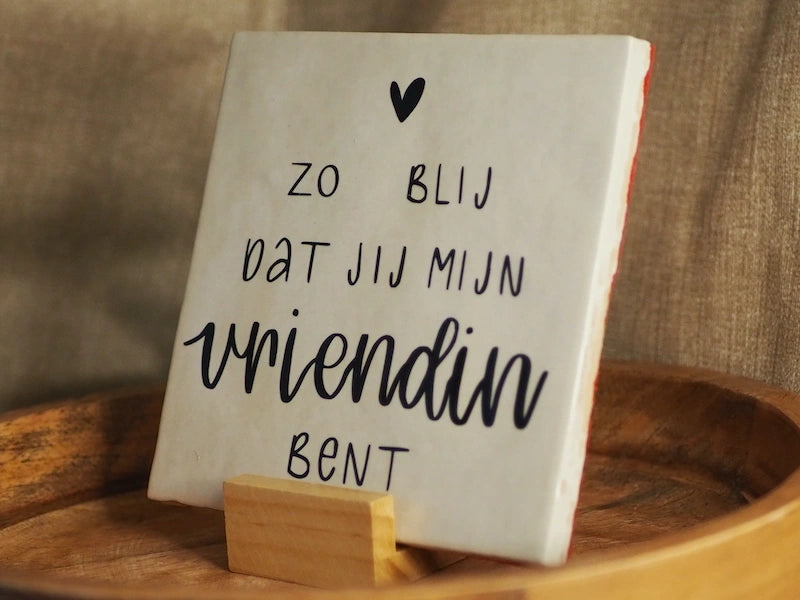 ZO BLIJ
DaT JIJ MIJN
vriendin
BeNT